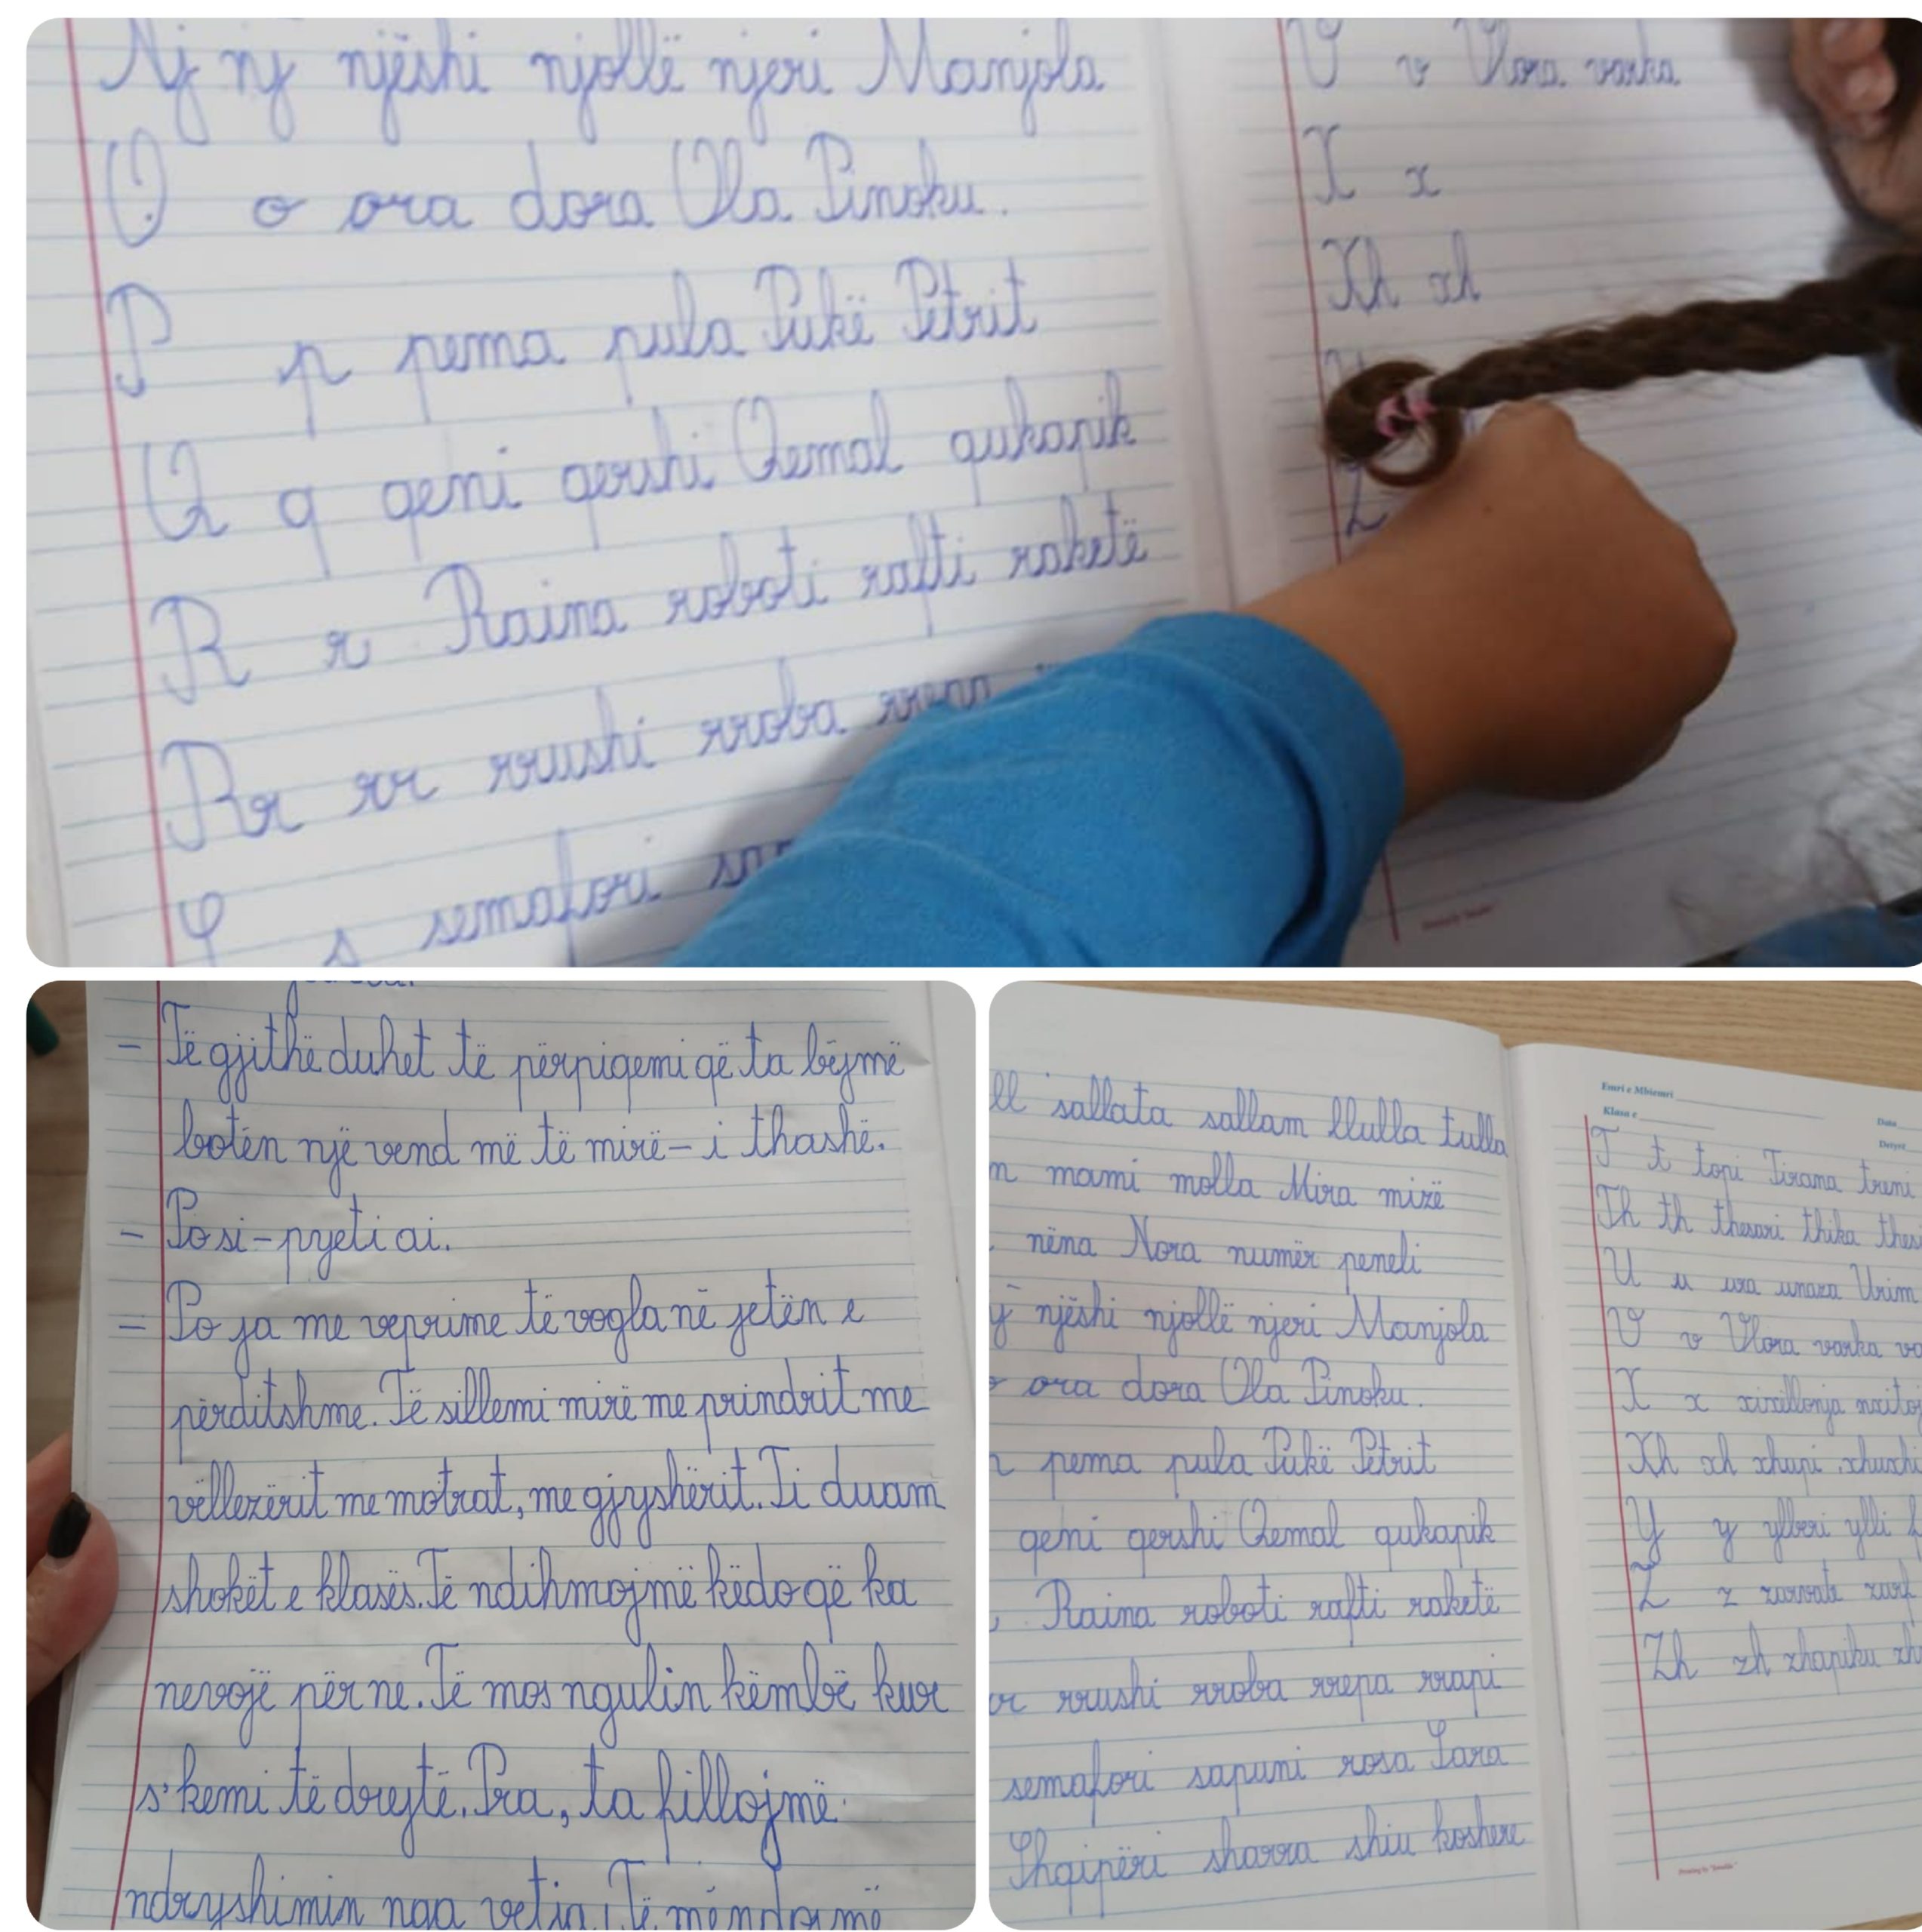 Nj nj njëshi njollë njeri Manjola
O o ora dora Ola Pinoku.
P p pema pula Pukë Petrit
Q q qeni qershi Qemal qukapik
R r Raina roboti rafti raketë
Rr rr rrushi rroba
S s semafori
V v Vlora varka
X x
Xh xh
Z
- Të gjithë duhet të përpiqemi që ta bëjmë
botën një vend më të mirë - i thashë.
- Po si - pyeti ai.
- Po ja me veprime të vogla në jetën e
përditshme. Të sillemi mirë me prindrit me
vëllezërit me motrat, me gjyshërit. Ti duam
shokët e klasës. Të ndihmojmë këdo që ka
nevojë për ne. Të mos ngulin këmbë kur
s'kemi të drejtë. Pra, ta fillojmë
ndryshimin nga vetja. Të mëndojmë
ll sallata sallam llulla tulla
m mami molla Mira mizë
nëna Nora numër peneli
njëshi njollë njeri Manjola
o ora dora Ola Pinoku.
pema pula Pukë Petrit
qeni qershi Qemal qukapik
Raina roboti rafti raketë
rr rrushi rroba rrepa rrapi
semafori sapuni rosa Sara
Shqipëri sharra shiu koshere
Emri e Mbiemri
Klasa e
Data
Detyrë
T t topi Tirana treni
Th th thesari thika
U u ura unaza Urim
V v Vlora varka
X x xixëllonja
Xh xh xhupi xhuxhi
Y y ylberi ylli
Z z zarzate
Zh zh zhapiku